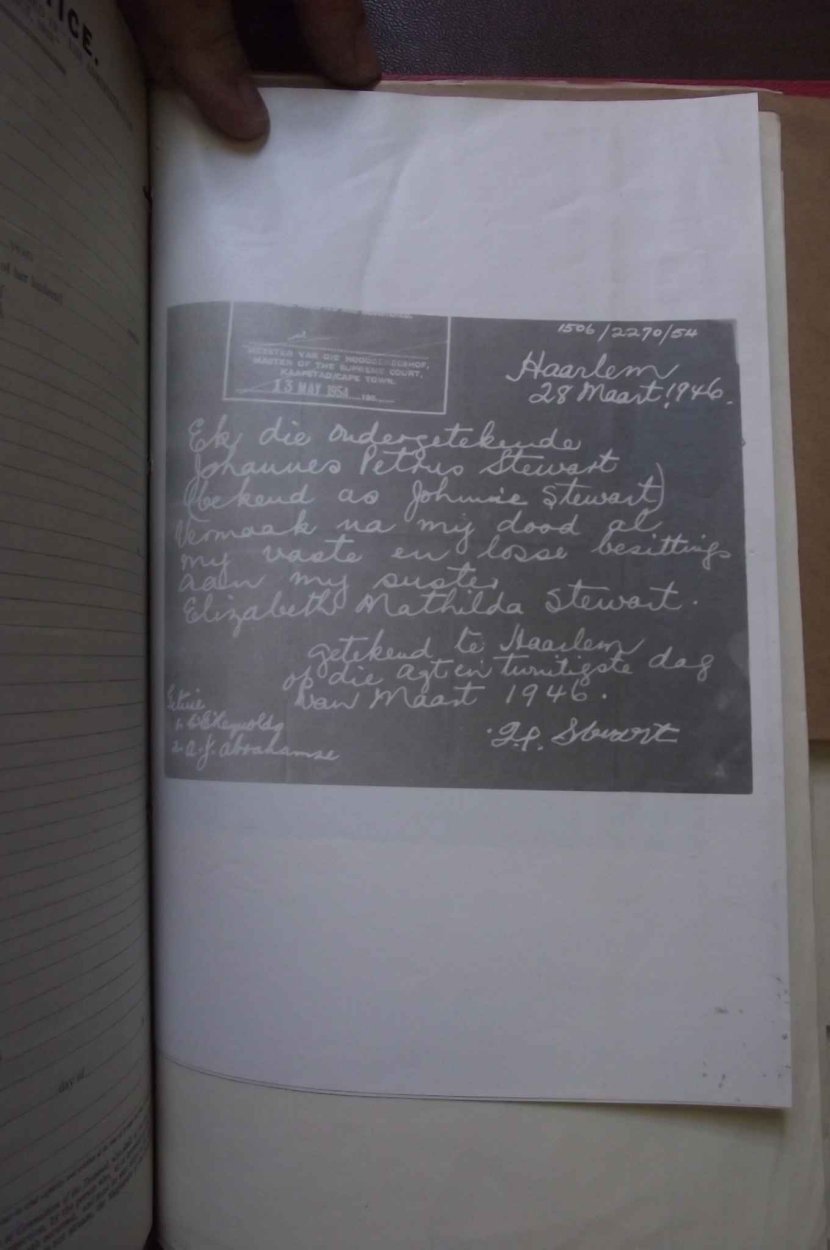 TICE.
1506/2270/54
MEESTER VAN DIE HOOGGEREGSHOF,
MASTER OF THE SUPREME COURT,
KAAPSTAD/CAPE TOWN.
13 MAY 1954
Haarlem
28 Maart 1946.
Ek die ondergetekende
Johannes Petrus Stewart
(bekend as Johnnie Stewart)
Vermaak na my dood al
my vaste en losse besittings
aan my suster
Elizabeth Mathilda Stewart.
getekend te Haarlem
op die agt en twintigste dag
van Maart 1946.
J.P. Stewart
2. A.J. Abrahamse
of her husband
day of